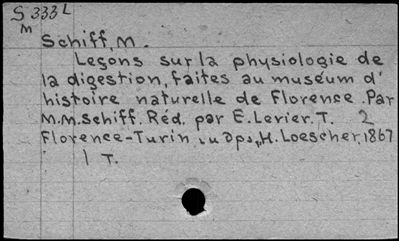 S 333 L
M
Schiff, M.
Leçons sur la physiologie de
la digestion, faites au muséum d'
histoire naturelle de Florence. Par
M.M. Schiff. Réd. par E. Levier. T. 2
Florence-Turin, H. Loescher, 1867
1 T.